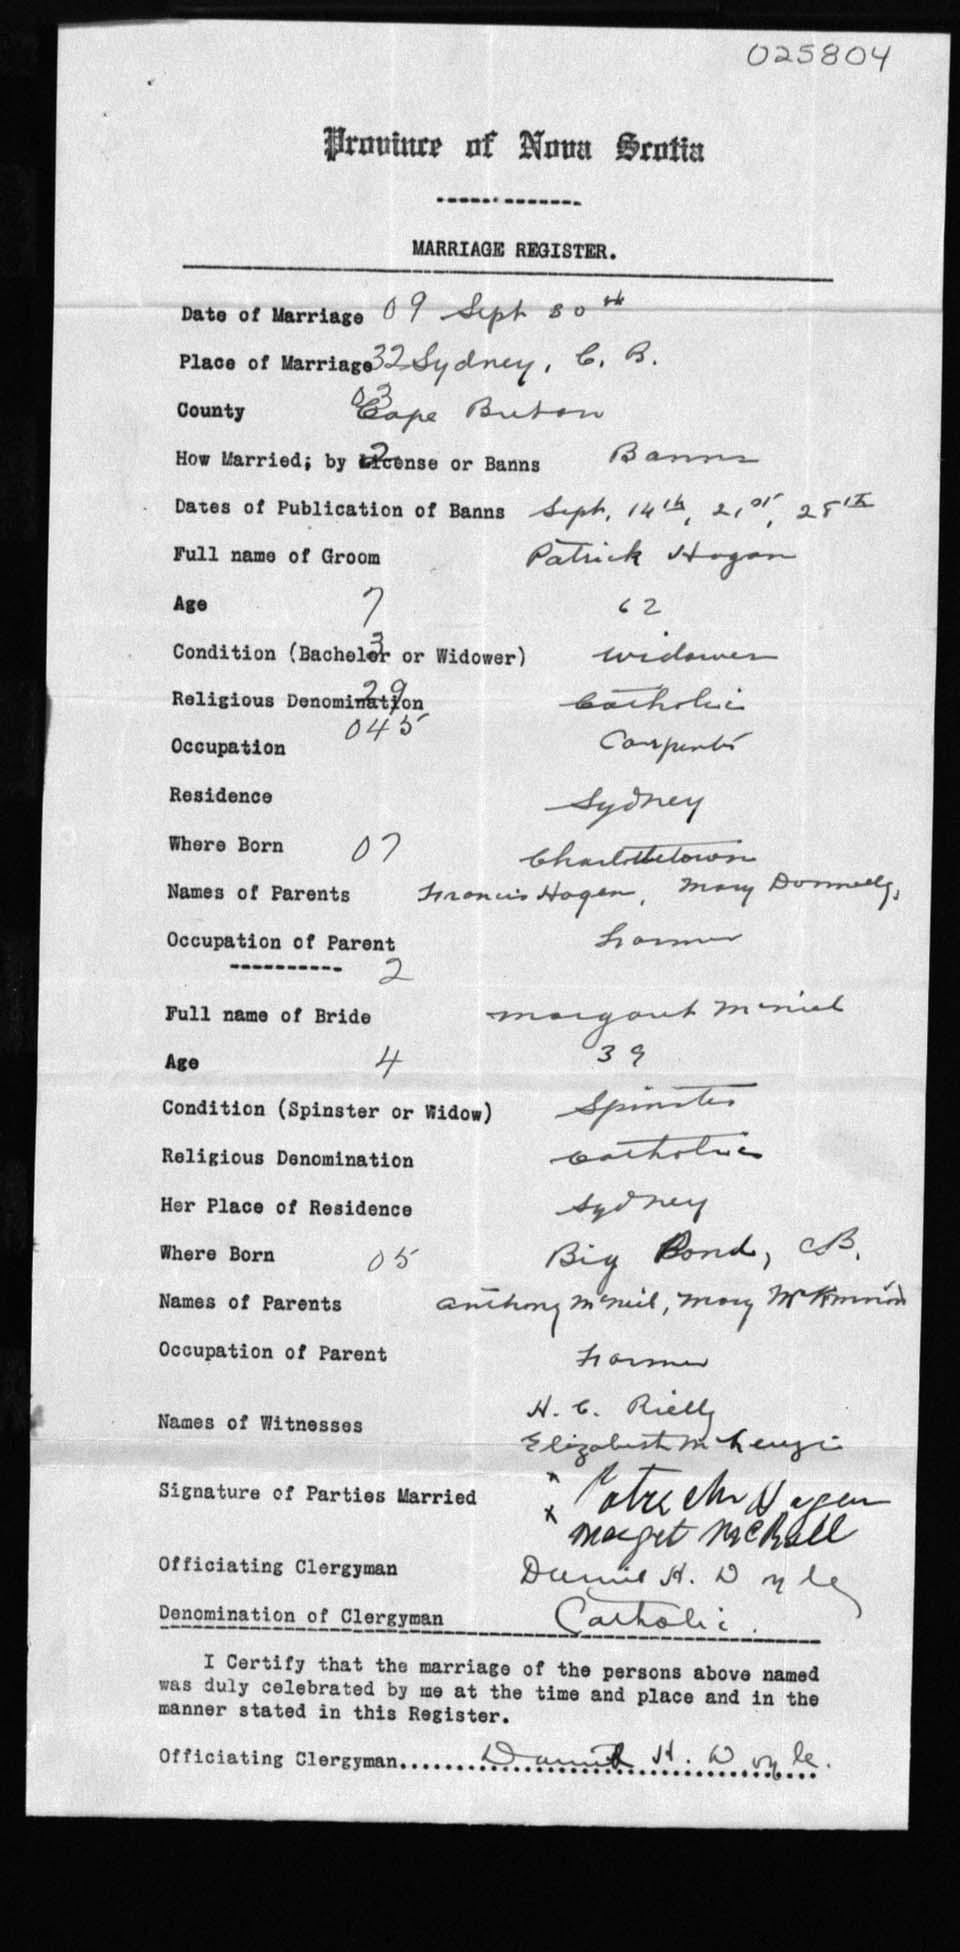 025804
Province of Nova Scotia
MARRIAGE REGISTER.
Date of Marriage 09 Sept 30th
Place of Marriage 32 Sydney, C. B.
County 03 Cape Breton
How Married; by License or Banns 2 Banns
Dates of Publication of Banns Sept, 14th, 21st, 28th
Full name of Groom Patrick Hogan
Age 7 62
Condition (Bachelor or Widower) 3 widower
Religious Denomination 29 Catholic
Occupation 045 Carpenter
Residence Sydney
Where Born 07 Charlottetown
Names of Parents Francis Hogan, Mary Donnelly,
Occupation of Parent Farmer
2
Full name of Bride Margaret McNeil
Age 4 39
Condition (Spinster or Widow) Spinster
Religious Denomination Catholic
Her Place of Residence Sydney
Where Born 05 Big Pond, CB.
Names of Parents Anthony McNeil, Mary McKinnon
Occupation of Parent Farmer
Names of Witnesses H. C. Rielly
Elizabeth McKenzie
Signature of Parties Married x Patrick Hogan
x
Officiating Clergyman Daniel H. Doyle
Denomination of Clergyman Catholic.
I Certify that the marriage of the persons above named
was duly celebrated by me at the time and place and in the
manner stated in this Register.
Officiating Clergyman.....Daniel H. Doyle.